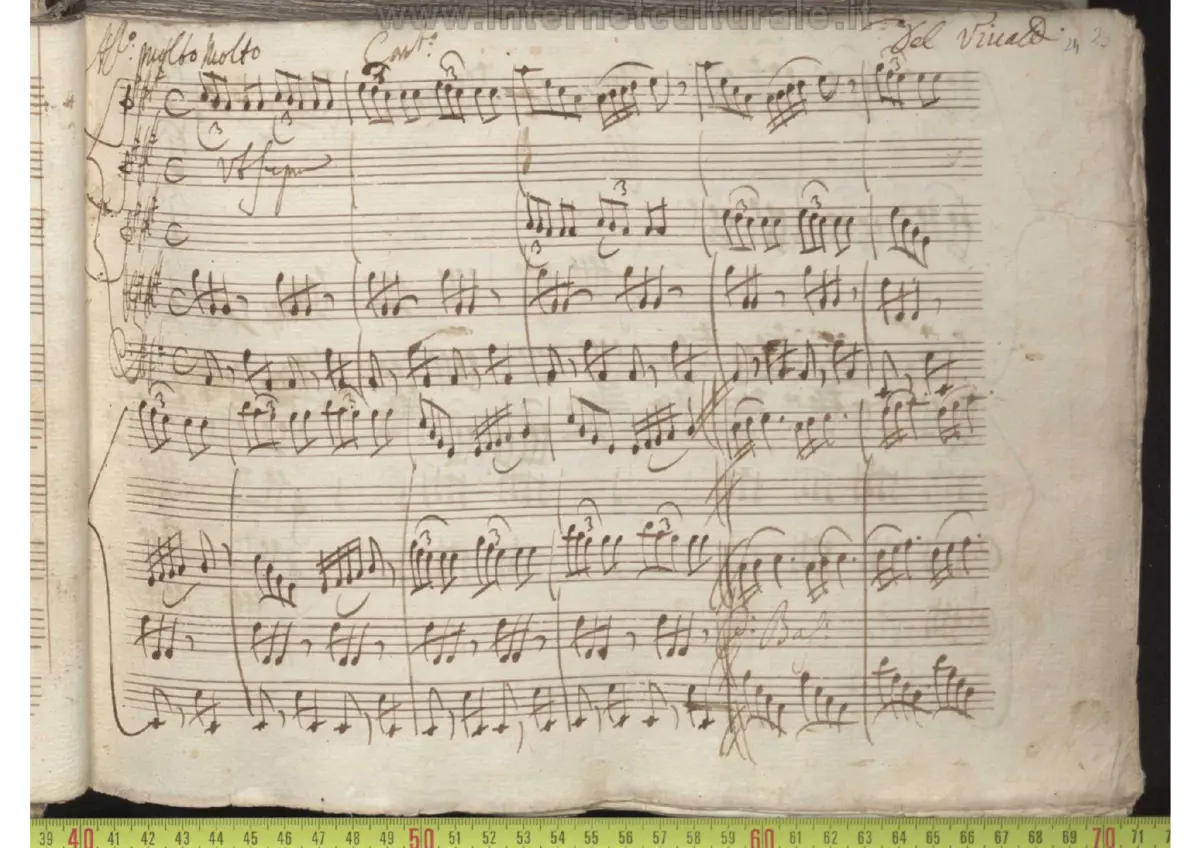 www.internetculturale.it
All.º Molto Molto Conto Del Viualdi 24 23
3 3 3 3 3
Vt Supra
3 3 3 3
3 3 3
3 3 3 3
39 40 41 42 43 44 45 46 47 48 49 50 51 52 53 54 55 56 57 58 59 60 61 62 63 64 65 66 67 68 69 70 71